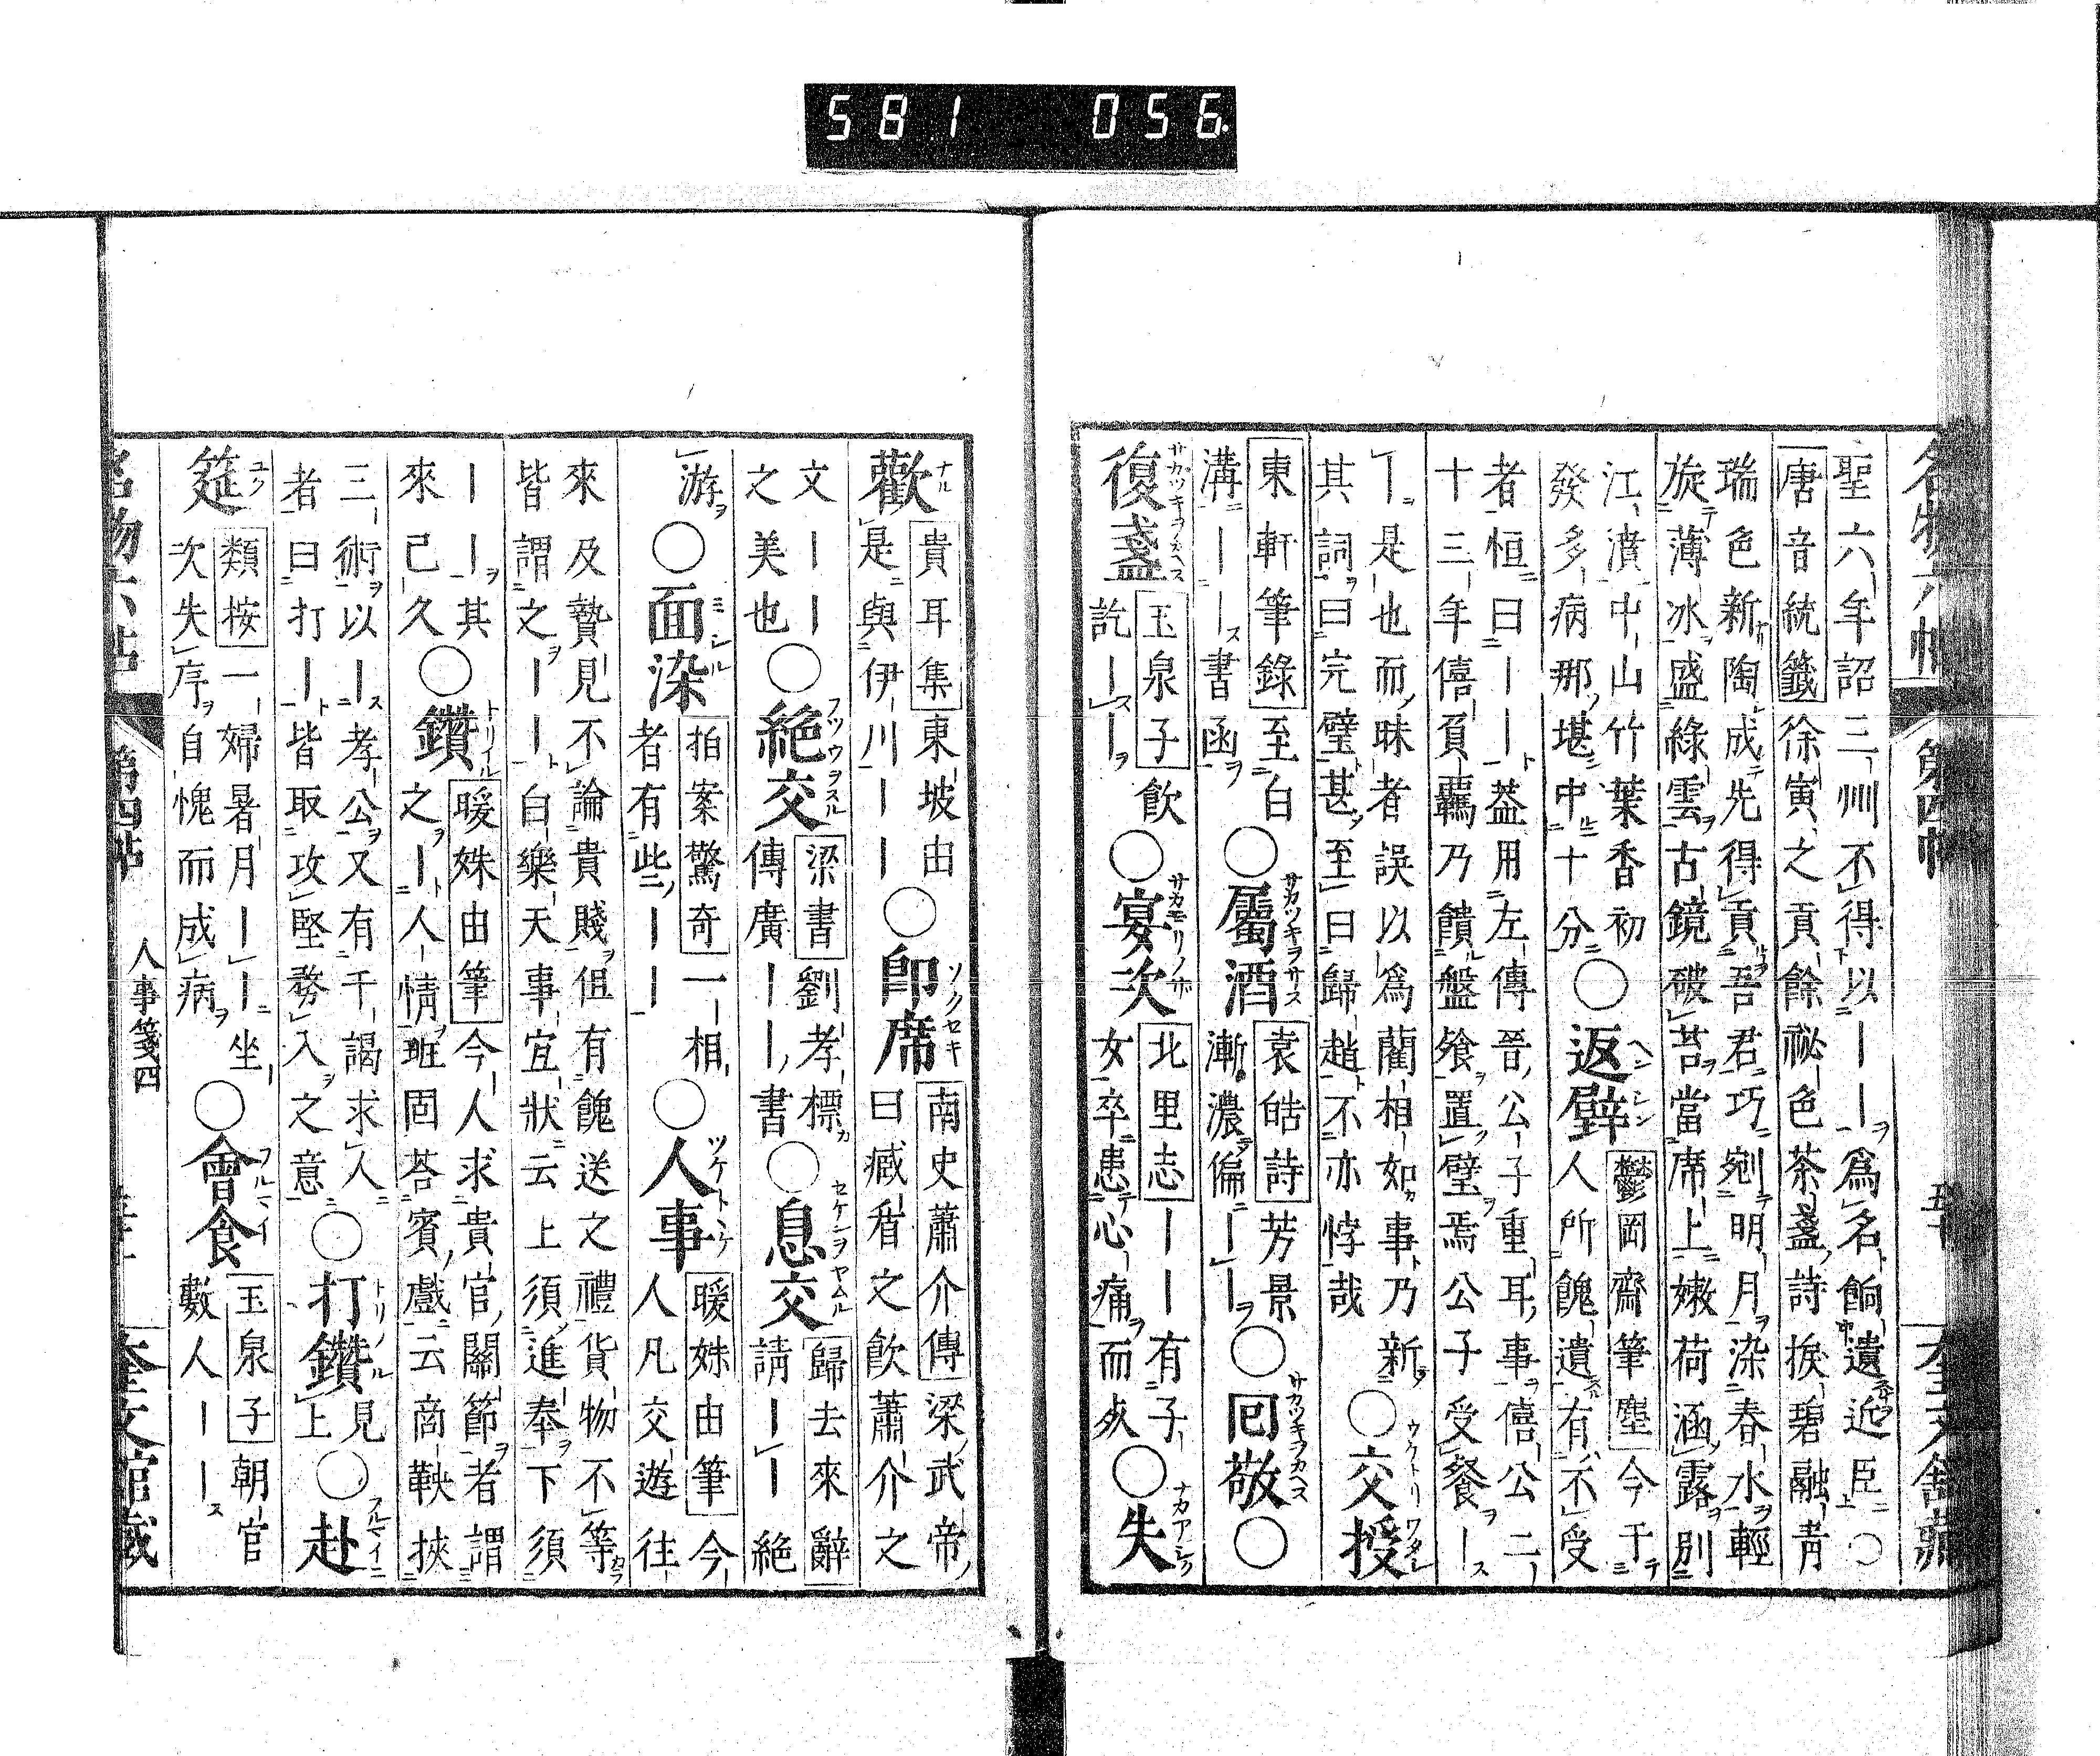 581 056
名物六帖 第四帖 奎文舘藏
聖六年詔三州不得以――爲名餉遺近臣○
唐音統籤徐寅之貢餘祕色茶盞詩捩碧融青
瑞色新陶成先得貢吾君巧剜明月染春水輕
旋薄冰盛綠雲古鏡破苔當席上嫩荷涵露別
江濆中山竹葉香初
發多病那堪中十分
○返璧
鬱岡齋筆麈今于
人所餽遺有不受
者恒曰――葢用左傳晉公子重耳事僖公二
十三年僖負羈乃饋盤飧置璧焉公子受餐―
―是也而昧者誤以爲藺相如事乃新
其詞曰完璧甚至曰歸趙不亦悖哉
○交授
東軒筆錄至白
溝――書函
○屬酒
袁皓詩芳景
漸濃偏――
○回敬○
復盞
玉泉子飲
訖――
○宴次
北里志――有子
女卒患心痛而死
○失
歡
貴耳集東坡由
是與伊川――
○即席
南史蕭介傳梁武帝
曰臧盾之飲蕭介之
文――
之美也
○絶交
梁書劉孝標
傳廣――書
○息交
歸去來辭
請――絶
游
○面染
拍案驚奇一相
者有些――
○人事
暖姝由筆今
人凡交遊往
來及贄見不論貴賤但有餽送之禮貨物不等
皆謂之――白樂天事宜狀云上須進奉下須
――其
來已久
○鑽
暖姝由筆今人求貴官關節者謂
之―人情班固荅賓戲云商鞅挾
三術以―孝公又有干謁求人
者曰打―皆取攻堅務入之意
○打鑽
見
上
○赴
筵
類按一婦暑月――坐
次失序自愧而成病
○會食
玉泉子朝官
數人――
名物六帖 第四帖 人事箋四 奎文舘藏